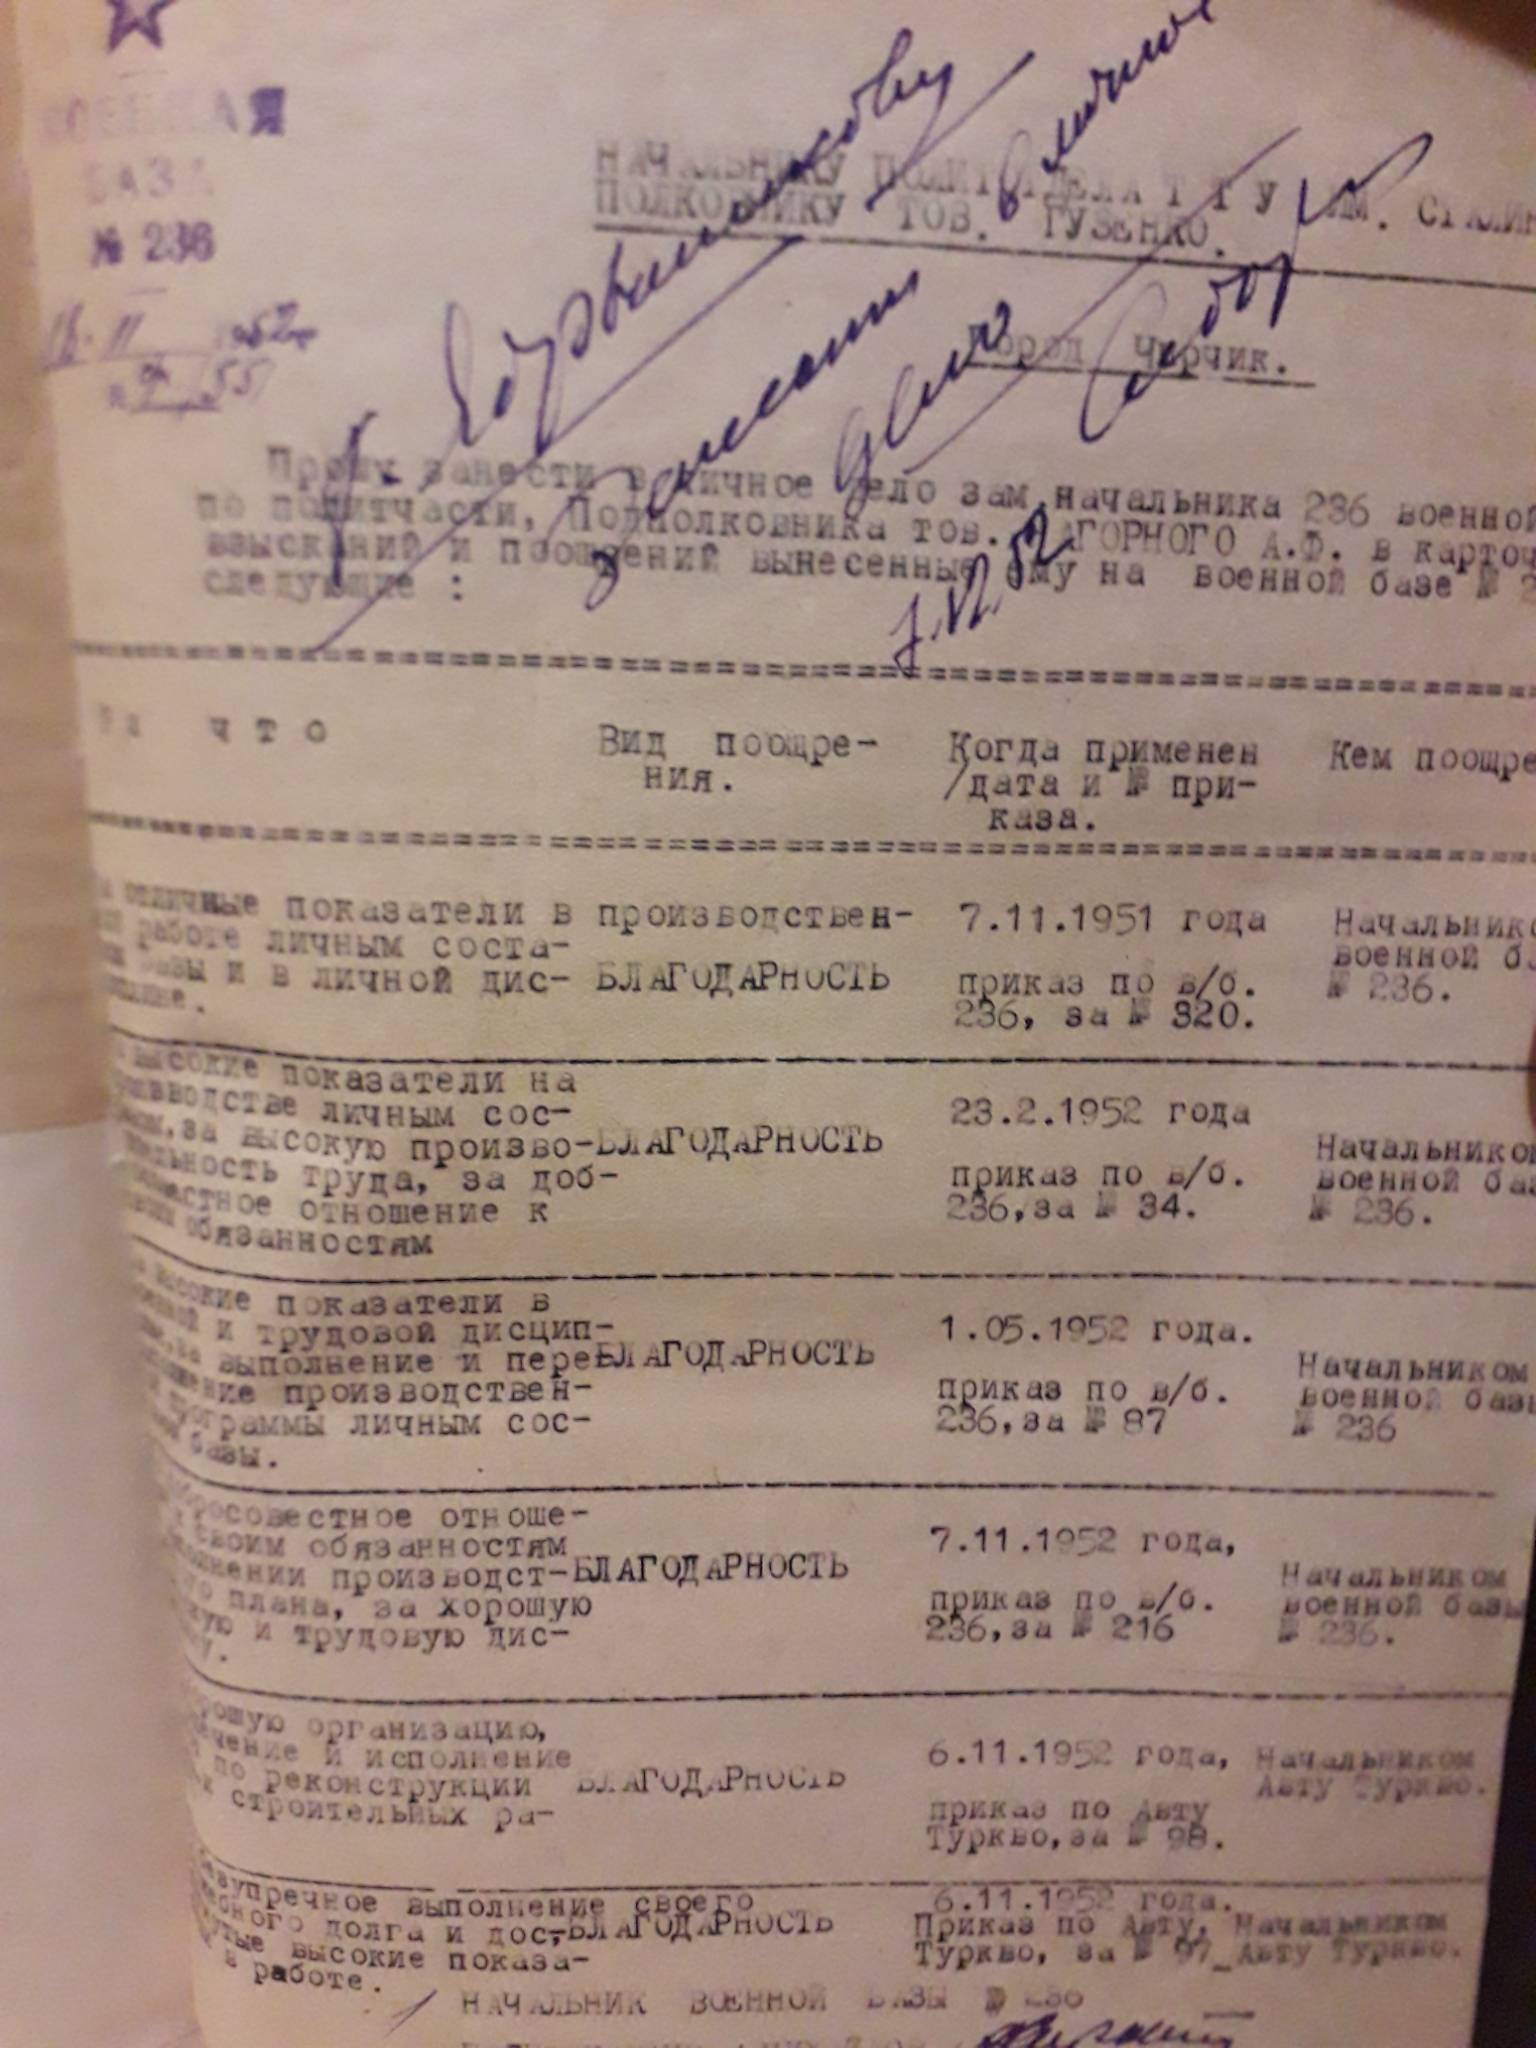 ВОЕННАЯ
БАЗА
№ 236
НАЧАЛЬНИКУ ПОЛИТОТДЕЛА Т Т У ИМ. СТАЛИН
ПОЛКОВНИКУ ТОВ. ГУЗЕНКО.
город Чирчик.
Прошу занести в личное дело зам.начальника 236 военной
по политчасти, Подполковника тов. ЗАГОРНОГО А.Ф. в карточ
взысканий и поощрений вынесенные ему на военной базе №
следующие :
7.12.52
За что
Вид поощре-
ния.
Когда применен
/дата и № при-
каза.
Кем поощре
За отличные показатели в производствен-
ной работе личным соста-
вом базы и в личной дис-
циплине.
БЛАГОДАРНОСТЬ
7.11.1951 года
приказ по в/б.
236, за № 320.
Начальнико
военной ба
№ 236.
За высокие показатели на
производстве личным сос-
тавом,за высокую произво-
дительность труда, за доб-
росовестное отношение к
своим обязанностям
БЛАГОДАРНОСТЬ
23.2.1952 года
приказ по в/б.
236,за № 34.
Начальником
военной баз
№ 236.
За высокие показатели в
военной и трудовой дисцип-
лине,за выполнение и пере-
выполнение производствен-
ной программы личным сос-
тавом базы.
БЛАГОДАРНОСТЬ
1.05.1952 года.
приказ по в/б.
236,за № 87
Начальником
военной базы
№ 236
добросовестное отноше-
своим обязанностям
выполнении производст-
го плана, за хорошую
и трудовую дис-
БЛАГОДАРНОСТЬ
7.11.1952 года,
приказ по в/б.
236,за № 216
Начальником
военной базы
№ 236.
хорошую организацию,
и исполнение
по реконструкции
строительных ра-
БЛАГОДАРНОСТЬ
6.11.1952 года,
приказ по Авту
Туркво,за № 98.
Начальником
Авту Туркво.
безупречное выполнение своего
долга и дос-
высокие показа-
в работе.
БЛАГОДАРНОСТЬ
6.11.1952 года.
Приказ по Авту,
Туркво, за № 97
Начальником
Авту Туркво.
НАЧАЛЬНИК ВОЕННОЙ БАЗЫ № 236